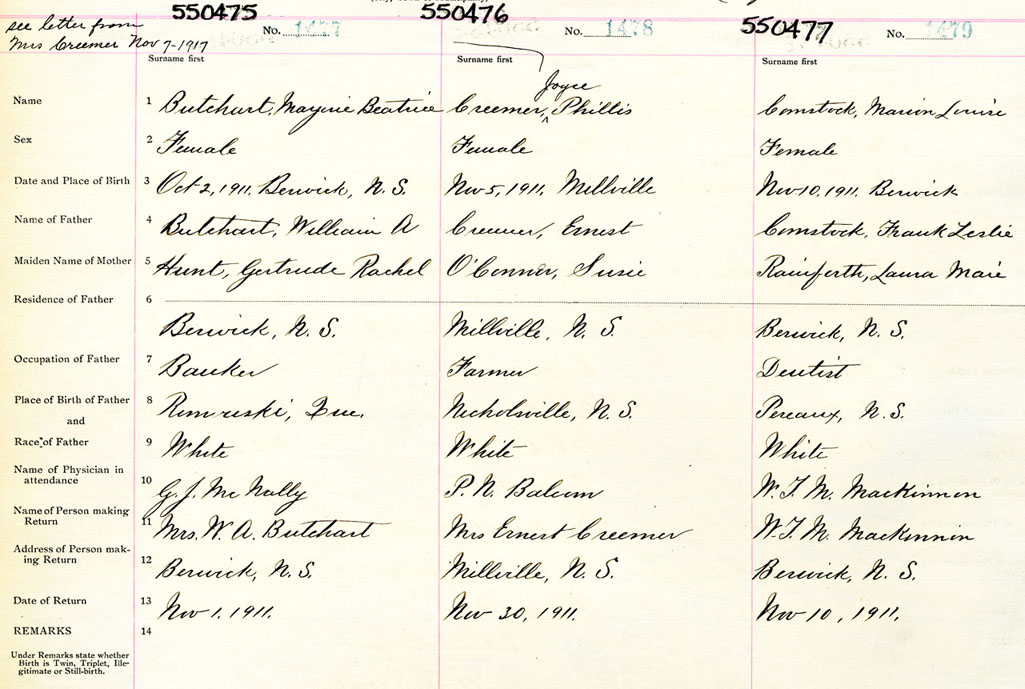 550475
550476
550477
see letter from
Mrs Creemer Nov 7-1917
No. 1477
No. 1478
No. 1479
Surname first
Surname first
Surname first
Joyce
Name 1 Butchart, Marjorie Beatrice Creemer, ^ Phillis Comstock, Marion Louise
Sex 2 Female Female Female
Date and Place of Birth 3 Oct 2, 1911. Berwick, N. S. Nov 5, 1911, Millville Nov 10, 1911. Berwick
Name of Father 4 Butchart, William A Creemer, Ernest Comstock, Frank Leslie
Maiden Name of Mother 5 Hunt, Gertrude Rachel O'Connor, Susie Rainforth, Laura Marie
Residence of Father 6
Berwick, N. S. Millville, N. S. Berwick, N. S.
Occupation of Father 7 Banker Farmer Dentist
Place of Birth of Father 8 Que. Nicholsville, N. S. Pereaux, N. S.
and
Race of Father 9 White White White
Name of Physician in
attendance 10 G. J. McNally P. N. Balcom W. F. M. MacKinnon
Name of Person making
Return 11 Mrs. W. A. Butchart Mrs Ernest Creemer W. F. M. MacKinnon
Address of Person mak-
ing Return 12 Berwick, N. S. Millville, N. S. Berwick, N. S.
Date of Return 13 Nov 1. 1911. Nov 30, 1911. Nov 10, 1911.
REMARKS 14
Under Remarks state whether
Birth is Twin, Triplet, Ille-
gitimate or Still-birth.